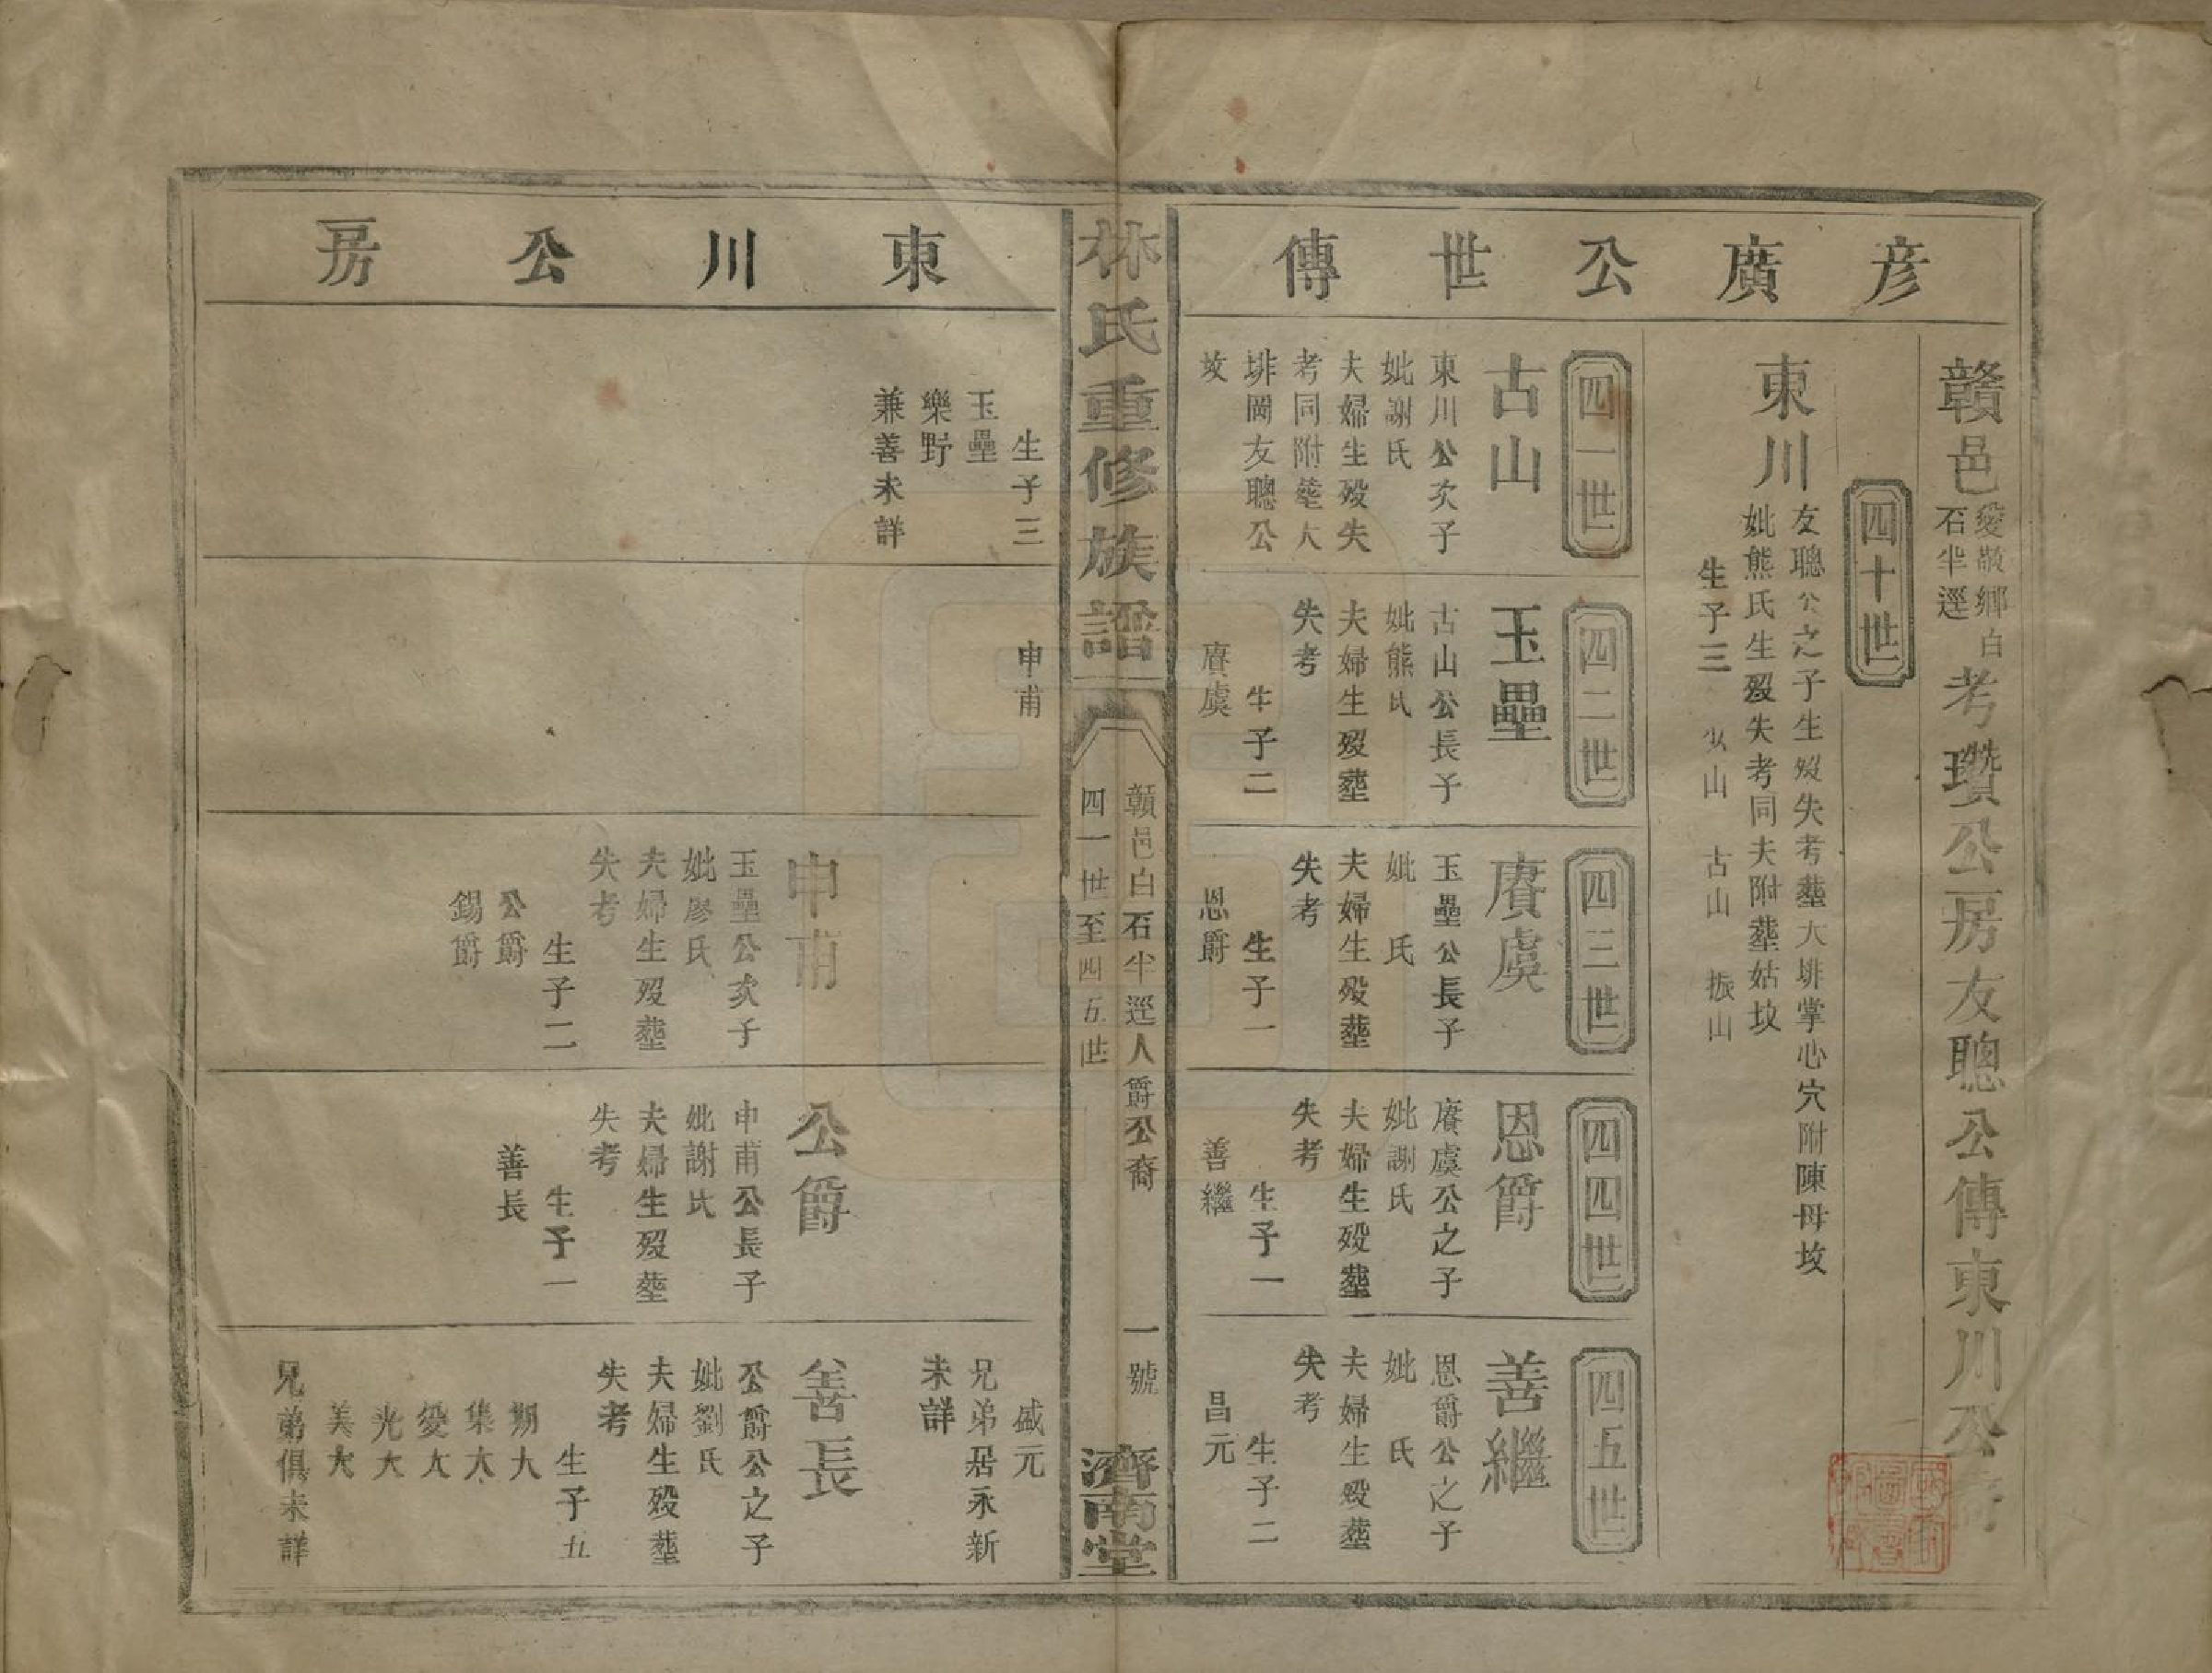 彥廣公世傳
贛邑
愛敬鄉白
石半逕
考瓚公房友聰公傳東川公裔
四十世
東川
友聰公之子生歿失考塟大垹掌心穴附陳母坟
妣熊氏生歿失考同夫附塟姑坟
生子三 少山 古山 振山
四一世
古山
東川公次子
妣謝氏
夫婦生歿失
考同附塟大
垹岡友聰公
坟
四二世
玉壘
古山公長子
妣熊氏
夫婦生歿塟
失考
生子二
賡虞
四三世
賡虞
玉壘公長子
妣 氏
夫婦生歿塟
失考
生子一
恩爵
四四世
恩爵
賡虞公之子
妣謝氏
夫婦生歿塟
失考
生子一
善繼
四五世
善繼
恩爵公之子
妣 氏
夫婦生歿塟
失考
生子二
昌元
林氏重修族譜
贛邑白石半逕人爵公裔
四一世至四五世
一號
濟南堂
東川公房
生子三
玉壘
樂野
兼善未詳
申甫
申甫
玉壘公次子
妣廖氏
夫婦生歿塟
失考
生子二
公爵
錫爵
公爵
申甫公長子
妣謝氏
夫婦生歿塟
失考
生子一
善長
盛元
兄弟居永新
未詳
善長
公爵公之子
妣劉氏
夫婦生歿塟
失考
生子五
期大
集大
燮大
光大
美大
兄弟俱未詳